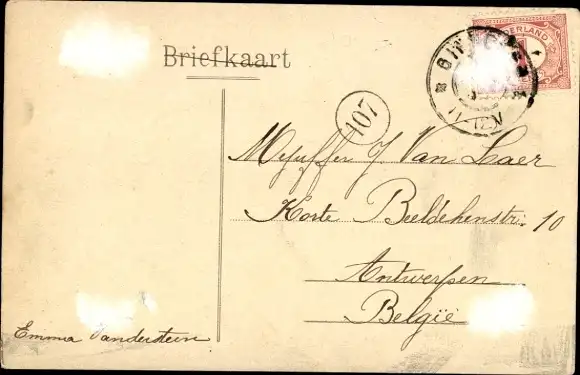 Briefkaart
NEDERLAND
107
11-12V
Mejuffer J. Van Laer
Korte Beeldekenstr. 10
Antwerpen
België
Emma Vandersteen